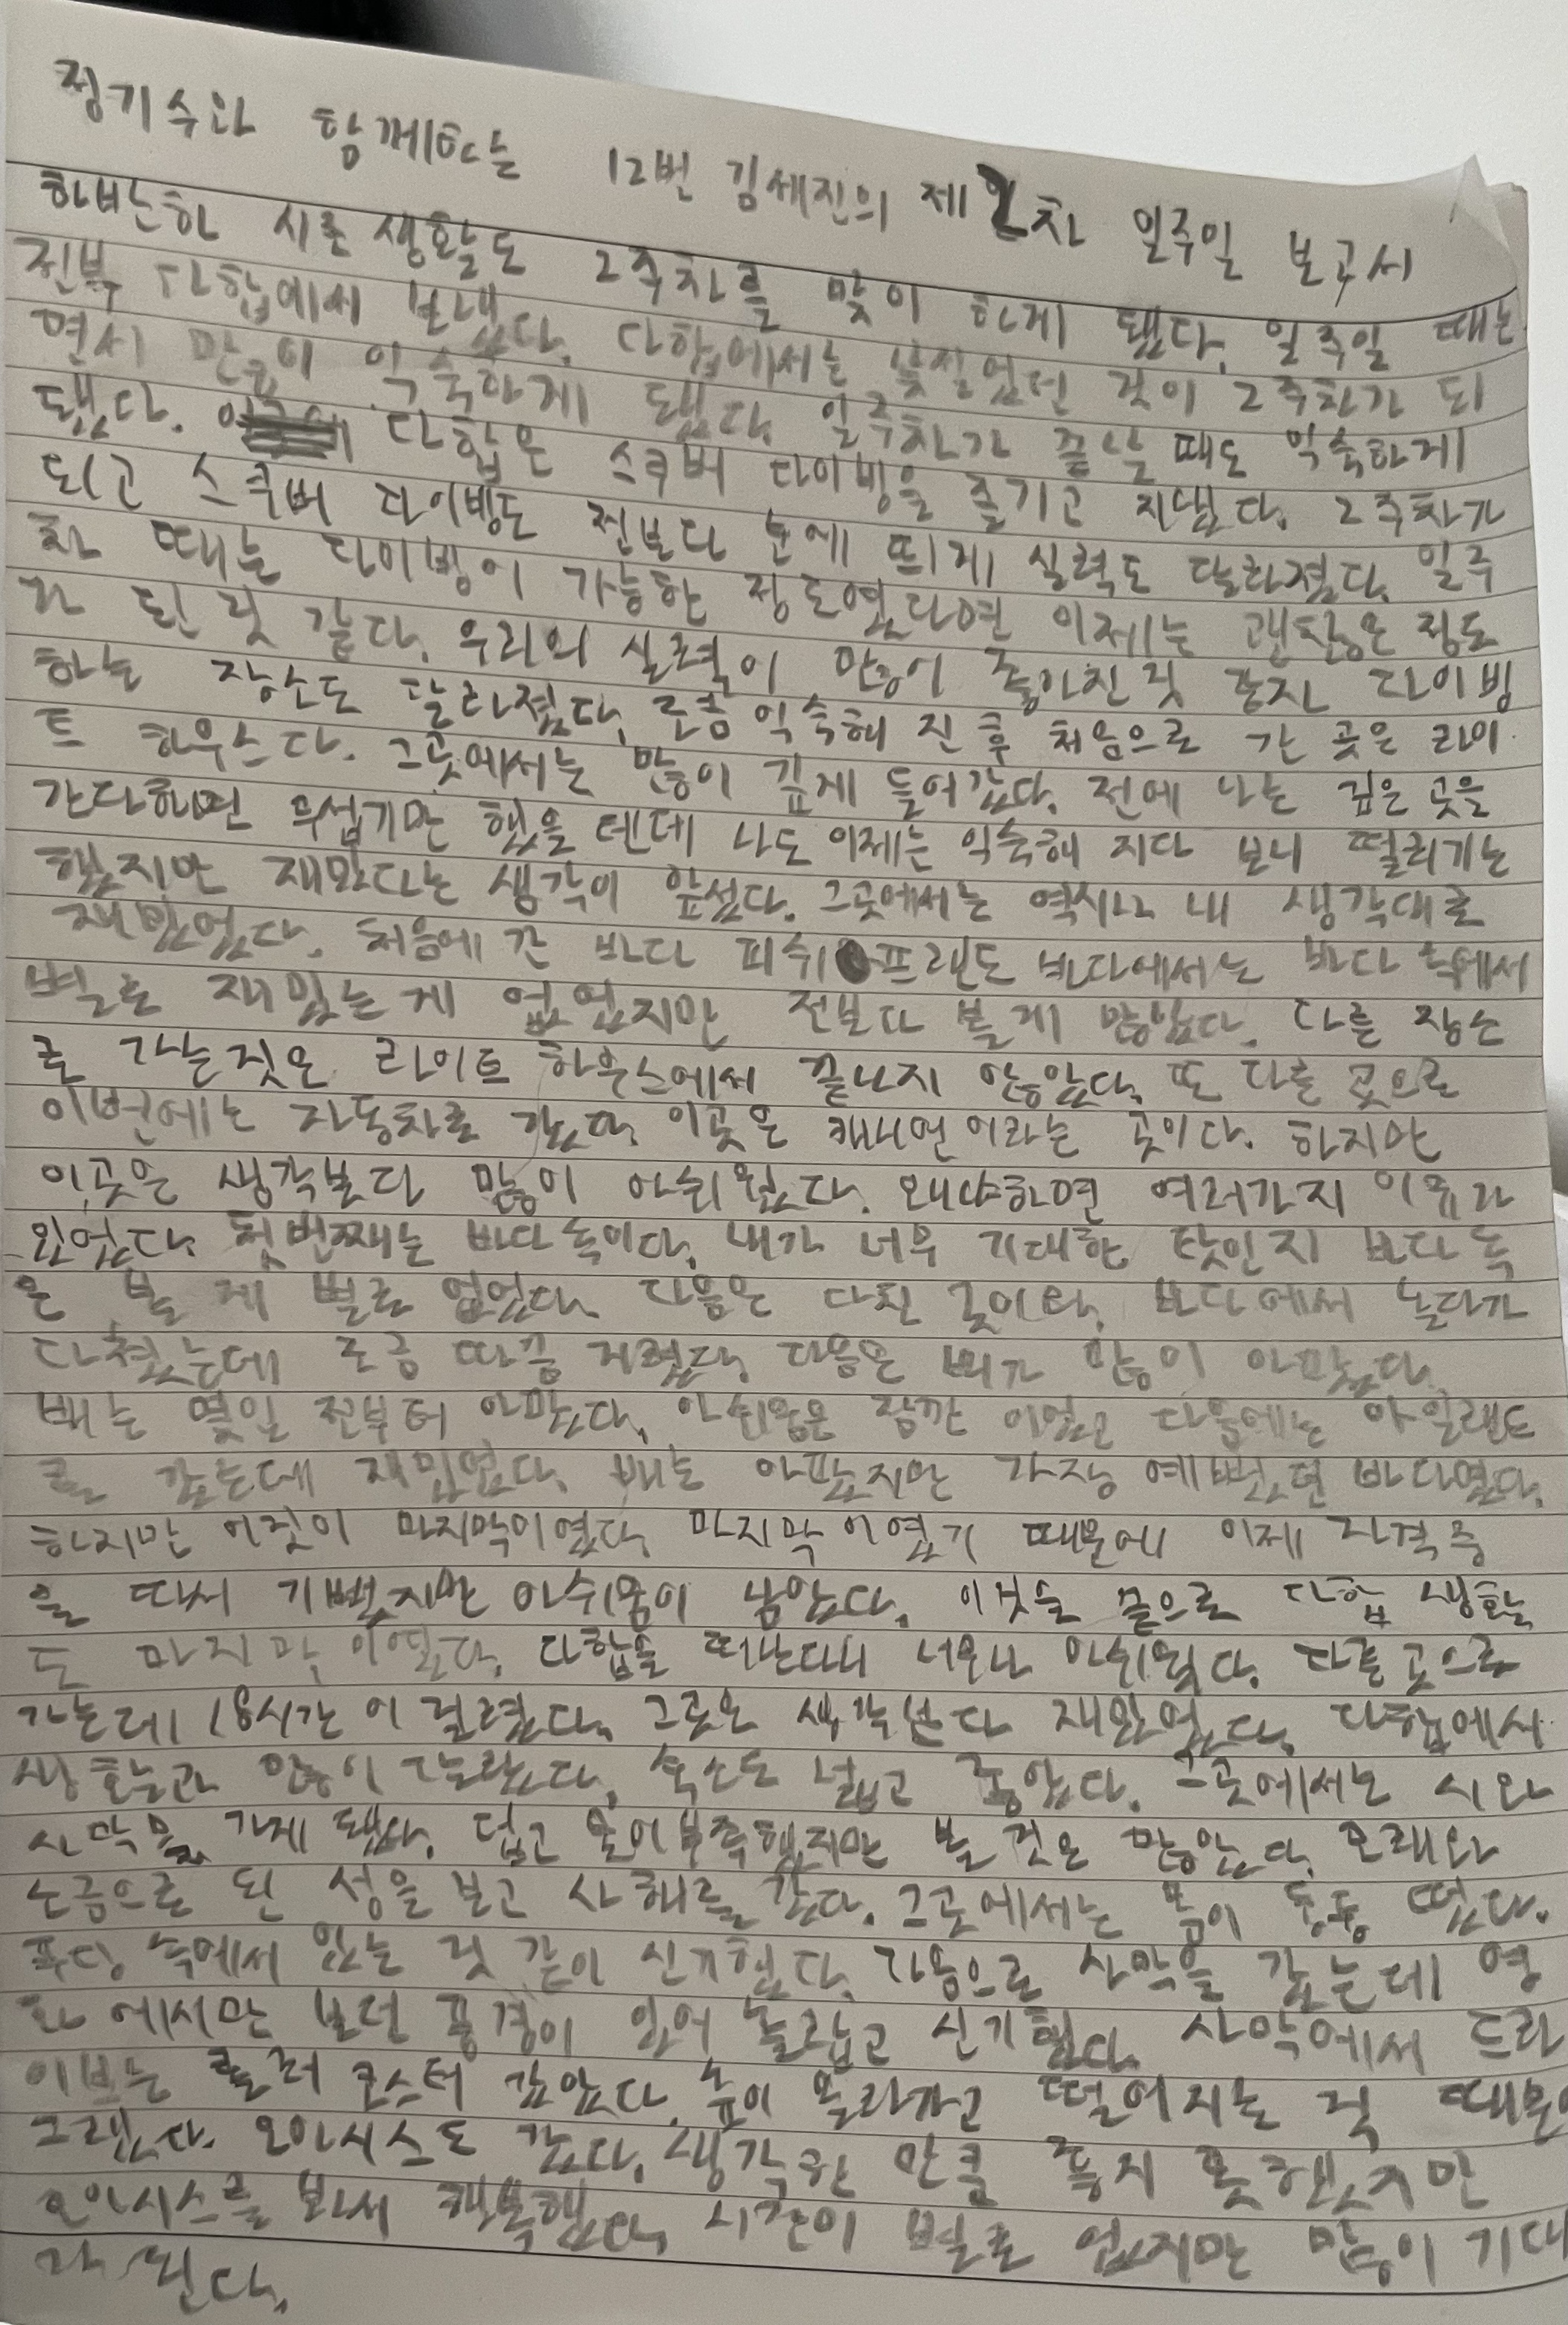 정기수와 함께하는 12번 김세진의 제2차 일주일 보고서
하반한 시존 생활도 2주차를 맞이 하게 됐다. 일주일 때는
전부 다합에서 보냈다. 다합에서는 낯설었던 것이 2주차가 되
면서 만큼이 익숙하게 됐다. 일주차가 끝날 때도 익숙하게
됐다. 다합은 스쿠버 다이빙을 즐기고 지냈다. 2주차가
되고 스쿠버 다이빙도 전보다 눈에 띄게 실력도 달라졌다. 일주
차 때는 다이빙이 가능한 정도였다면 이제는 괜찮은 정도
가 된 것 같다. 우리의 실력이 많이 좋아진 것 다이빙
하는 장소도 달라졌다. 조금 익숙해 진 후 처음으로 간 곳은 라이
트 하우스다. 그곳에서는 많이 깊게 들어갔다. 전에 나는 깊은 곳을
간다하면 무섭기만 했을 텐데 나도 이제는 익숙해 지다 보니 떨리기는
했지만 재밌다는 생각이 앞섰다. 그곳에서는 역시나 내 생각대로
재밌었다. 처음에 간 바다 피쉬 프랜드 바다에서는 바다 속에서
별로 재밌는 게 없었지만 전보다 볼 게 많았다. 다른 장소
로 가는 것은 라이트 하우스에서 끝나지 않았다. 또 다른 곳으로
이번에는 자동차로 갔다. 이곳은 캐니언이라는 곳이다. 하지만
이곳은 생각보다 많이 아쉬웠다. 왜냐하면 여러가지 이유가
있었다. 첫번째는 바다 속이다. 내가 너무 기대한 탓인지 바다 속
은 볼 게 별로 없었다. 다음은 다친 곳이다. 바다에서 놀다가
다쳤는데 조금 따끔 저렸다. 다음은 배가 많이 아팠다.
배는 몇일 전부터 아팠다. 아쉬움은 잠깐 이었고 다음에는 아일랜드
를 갔는데 재밌었다. 배는 아팠지만 가장 예뻤던 바다였다.
하지만 이것이 마지막이였다. 마지막 이였기 때문에 이제 자격증
을 따서 기뻤지만 아쉬움이 남았다. 이것을 끝으로 다합 생활
도 마지막 이였다. 다합을 떠난다니 너무나 아쉬웠다. 다른 곳으로
가는데 18시간이 걸렸다. 그곳은 생각보다 재밌었다. 다합에서
생활과 많이 달랐다. 숙소도 넓고 좋았다. 그곳에서는 시와
사막을 가게 됐다. 덥고 물이 부족했지만 볼 것은 많았다. 모래와
소금으로 된 성을 보고 사해를 갔다. 그곳에서는 몸이 둥둥 떴다.
푸딩 속에서 있는 것 같이 신기했다. 다음으로 사막을 갔는데 영
화에서만 보던 풍경이 있어 놀랍고 신기했다. 사막에서 드라
이브는 롤러 코스터 같았다. 높이 올라가고 떨어지는 것 때문에
그랬다. 오아시스도 갔다. 생각한 만큼 좋지 못했지만
오아시스를 봐서 행복했다. 시간이 별로 없지만 많이 기대
가 된다.